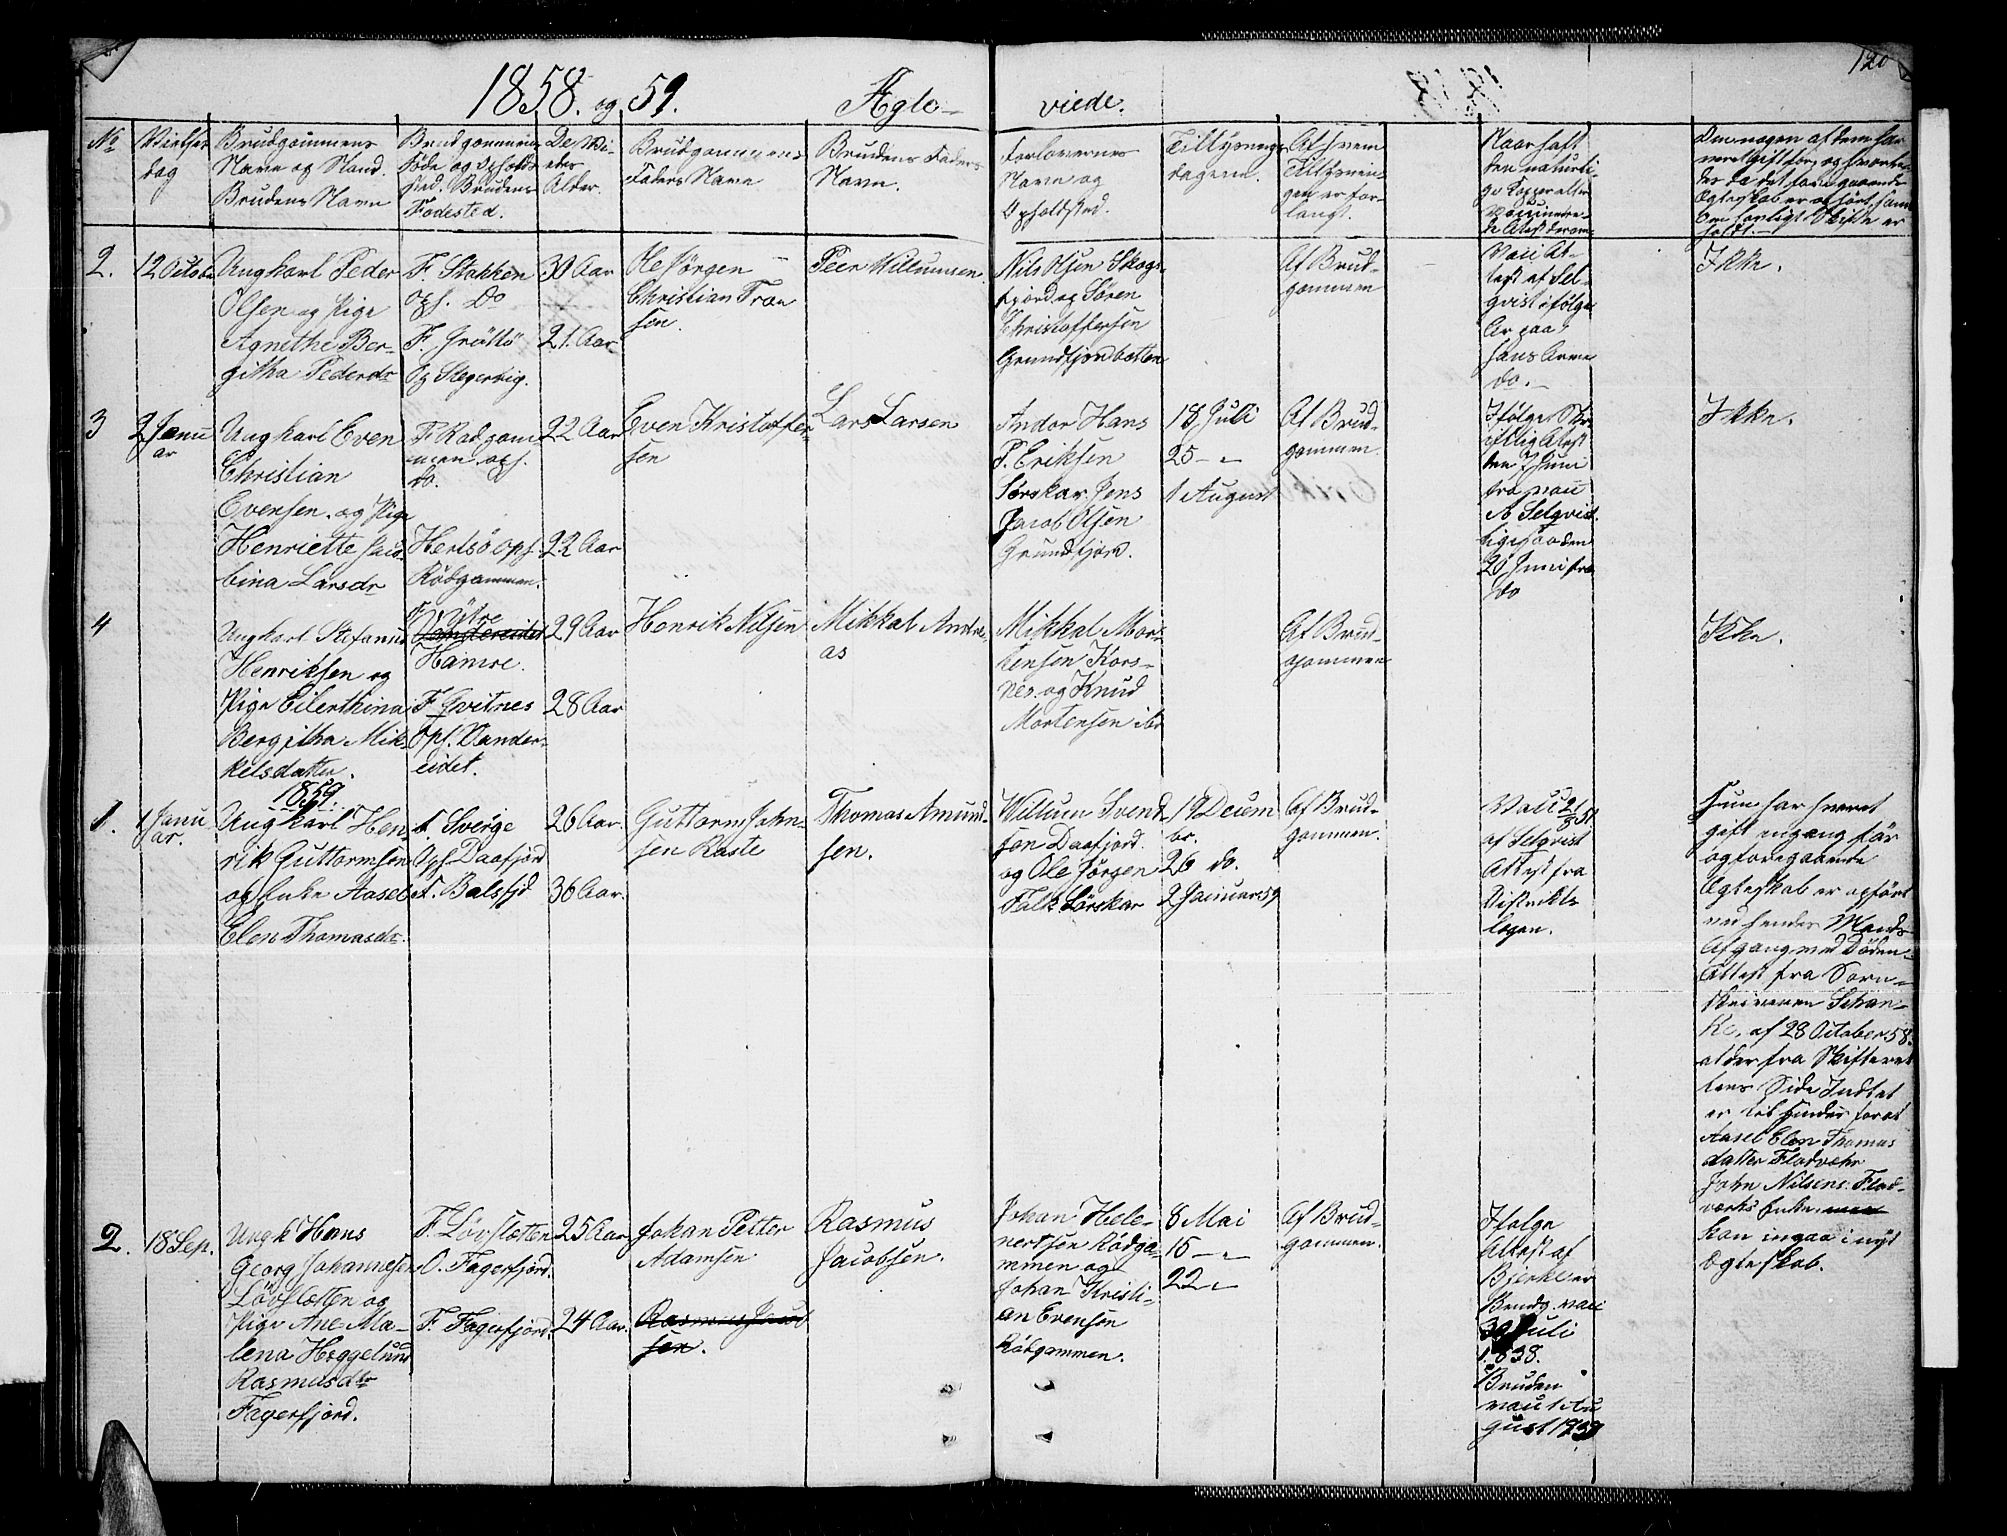 120
1858. og 59. Ægte-
viede.
No
Vielses
dag
Brudgommens
Navn og Stand.
Brudens Navn
Brudgommens
Føde og Opholds
sted. Brudens
Fødested.
De Vi-
edes
Alder.
Brudgommens
Faders Navn
Brudens Faders
Navn.
Forlovernes
Navn og
Opholdsted.
Tillysnings
dagene.
Af hvem
Tillysnin
gen er for-
langt.
Naar haft
den naturli-
ge Kopper eller
Vaccinere-
de Attest derom
Om nogen af dem har
været gift før, og hvorle
des da det foregaaende
Ægteskab er ophørt, samt
Om lovligt Skifte er
holdt.
2.
12 Octobr
Ungkarl Peder
Olsen og Pige
Agnethe Ber-
githa Pedersdr
F. Stakken
oph. Do
F. Grøttø
Op Slegervig.
30 Aar
21. Aar
Ole Jørgen
Christian Tran
sen.
Peer Willumsen
Nils Olsen Skogs-
fjord og Søren
Christoffersen
Grundfjordbotten
Af Brud-
gommen
Vacc At-
test af Sel-
qvist ifølge
Ar paa
hans Arme
do.-
Ikke.
3
2 Janu
ar
Ungkarl Even
Christian
Evensen. og Pige
Henriette Jaco
bina Larsdr
F. Rødgam-
men oph.
do.
Hersø oph.
Rødgammen.
22 Aar
22 Aar
Even Kristoffer-
sen
Lars Larsen
Andor Hans
P. Eriksen
Sørskar. Jens
Jacob Olsen
Grundfjord.
18 Juli
25 - "
1 August
Af Brud-
gommen.
Ifølge Skr
iftlig Attest
den 7 Juni
fra vacc
A Selqvist.
ligesaa den
20 Juni fra
do
Ikke.
4
Ungkarl Stefanus
Henriksen og
Pige Eilerthina
Bergitha Mik-
kelsdatter.
F. Ytre
Hamre.
F. Hvitnes
Oph. Vander-
eidet.
29 Aar
28 Aar
Henrik Nilsen
Mikkal Andre-
as
Mikkal Mor-
tensen Kors-
nes. og Knud
Mortensen ibd
Af Brud-
gommen
Ikke.
1859.
1.
1 Janu
ar.
Ungkarl Hen
rik Guttormsen
og Enke Aasel
Elen Thomasdr.
F. Sverge
Oph. Daafjord
F. Balsfjd
26 Aar.
36 Aar.
Guttorm John-
sen Raste
Thomas Amund-
sen.
Willum Svend
sen Daafjord.
og Ole Jørgen
Falk Sørskar
19 Decem
br.
26 do.
2 Januar 59
Af Brud-
gommen.
Vacc 21/8 51
af Selqvist
Attest fra
Distrikts
lægen.
Hun har været
gift engang før
og foregaaende
Ægteskab er ophørt
ved hendes Mands
Afgang ved Døden-
Attest fra Sorn-
skriveren Schan-
ke, af 28 October 58.
at der fra Skifteret
tens Side Intet
er til hinder for at
Aasel Elen Thomas
datter Flodværk
John Nilsens Flod-
værks Enke, men
kan ingaa i nyt
Ægteskab.
2.
18 Sep.
Ungk Hans
Georg Johannesen
Løvsletten og
Pige Ane Ma-
lena Heggelund
Rasmusdtr
Fagerfjord.
F. Løvsletten
O. Fagerfjord.
F. Fagerfjord.
25 Aar
24 Aar.
Johan Petter
Adamsen
Rasmus Jacob
sen.
Rasmus
Jacobsen.
Johan Hele-
nertsen Rødga-
mmen og
Johan Kristi-
an Evensen
Rødgammen.
8 Mai
15 - "
22 - "
Af Brud-
gommen.
Ifølge
Attest af
Bjerke er
Brudg. vacc
30 Juli
1838.
Bruden
vacc 1 Au
gust 1839